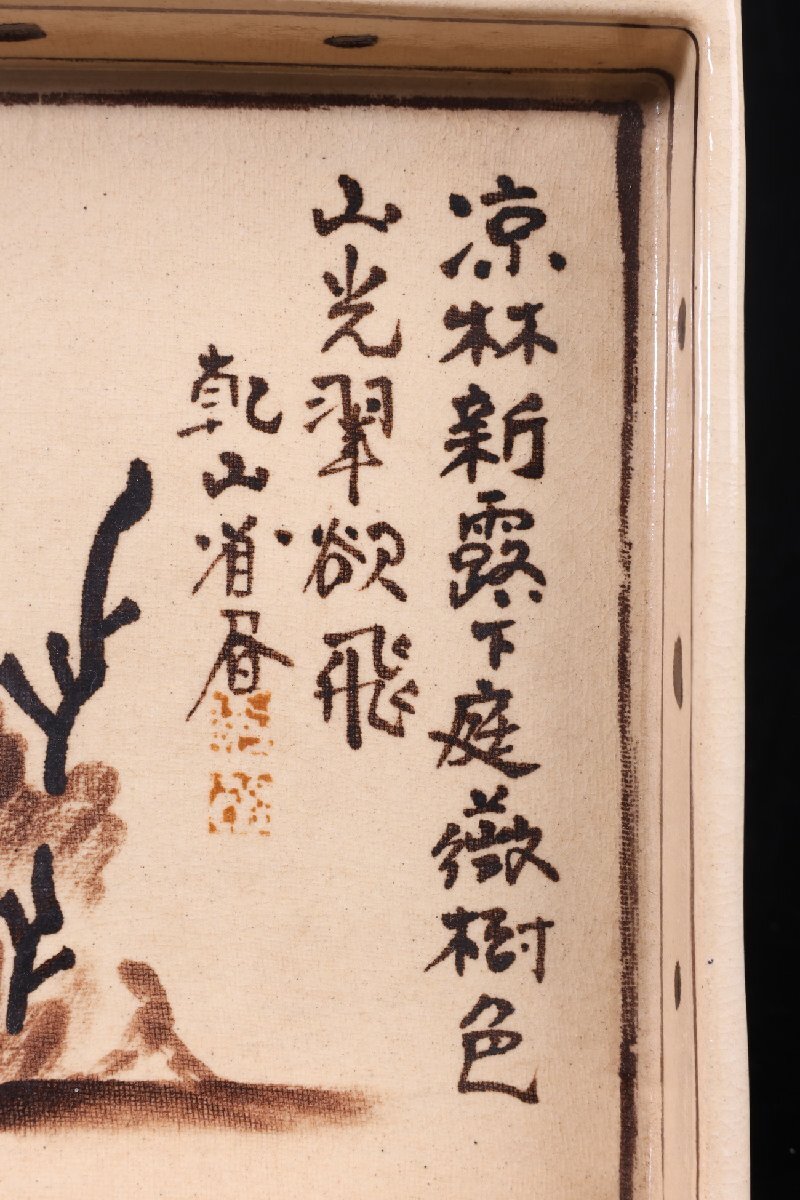 凉林新露下庭薇樹色
山光翠欲飛
乾山省書